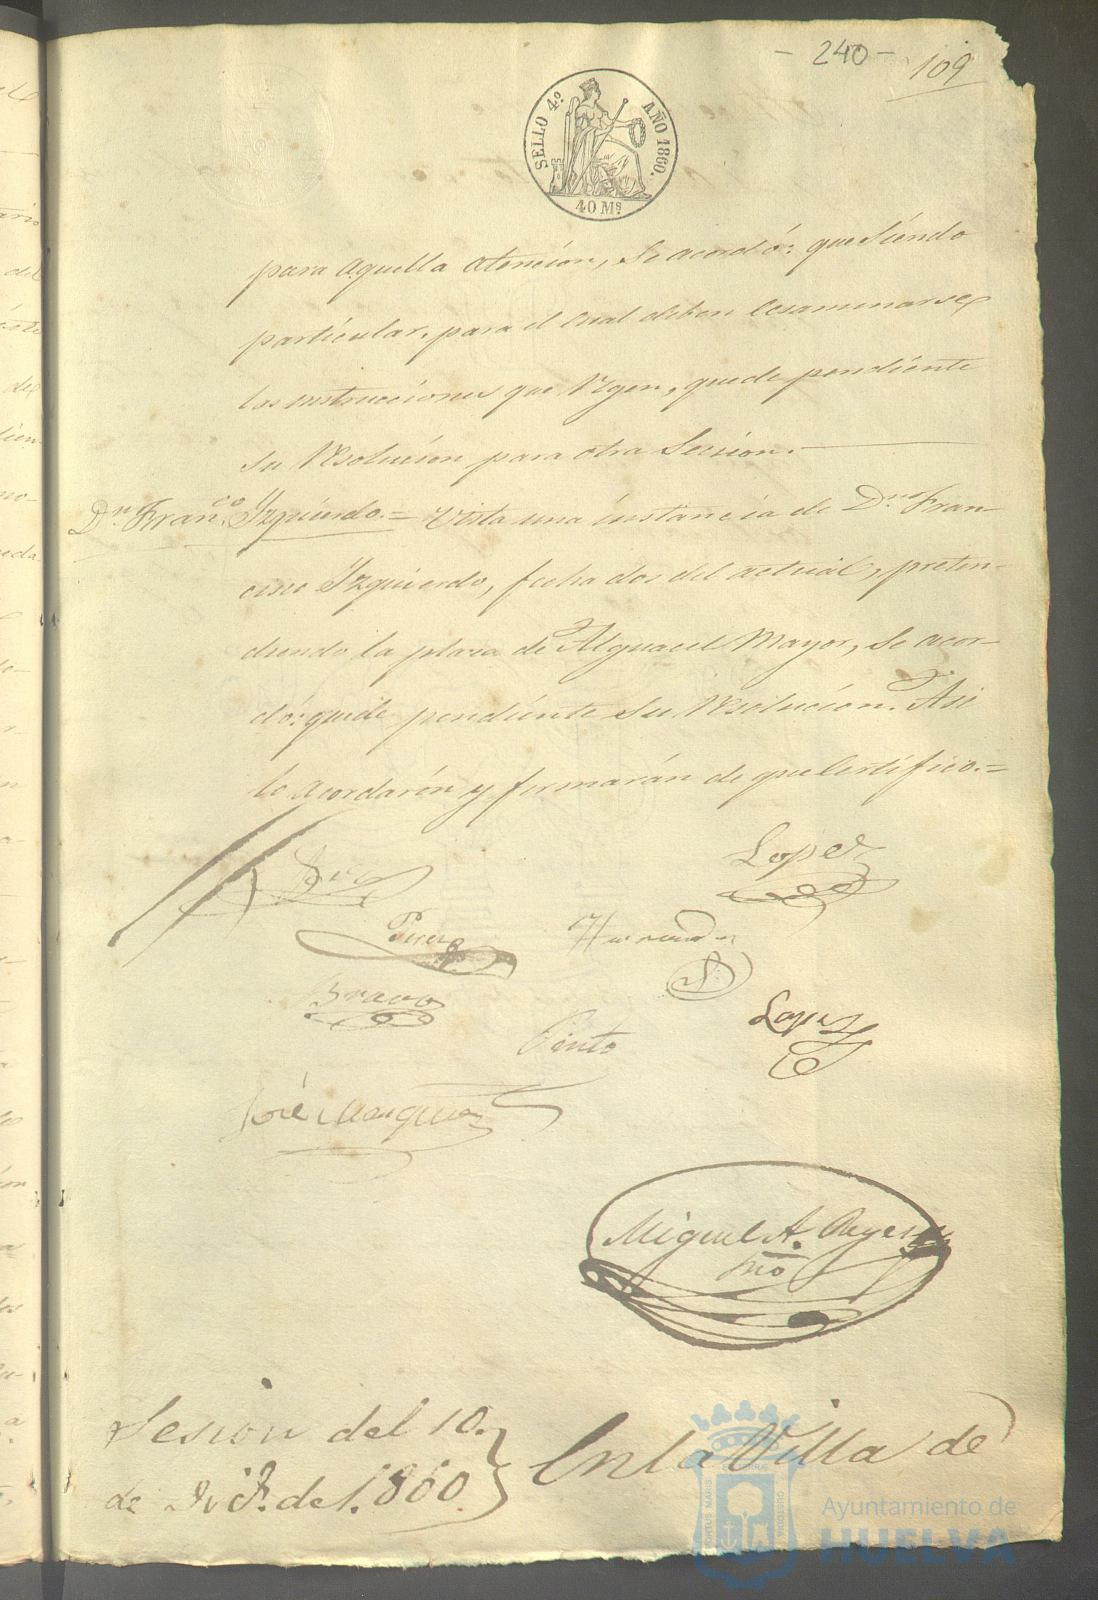 - 240 -
109
SELLO 4.º AÑO 1860.
40 Ms.
para aquella atencion, se acordó: que siendo
particular, para el cual deben ecsaminarse
las instrucciones que rigen, quede pendiente
su resolucion para otra Sesion.
Dn. Franco. Izquierdo.= Vista una instancia de Dn. Fran-
cisco Izquierdo, fecha dos del actual, preten-
diendo la plaza de Alguacil Mayor, se acor-
dó: quede pendiente su resolucion. Asi
lo acordarón y firmarán de que Certifico.=
Lopez
Perez
Hernandez
Bravo
Lopez
Pinto
José Marquez
Miguel A. Reyes
Srio
Sesion del 10.
de de 1.860. } En la Villa de
PORTUS MARIS ET TERRÆ CUSTODIA
Ayuntamiento de
HUELVA